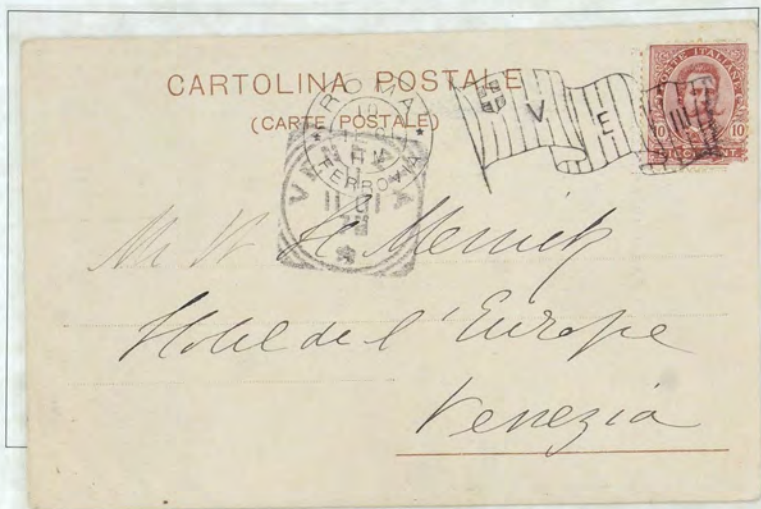 CARTOLINA POSTALE
(CARTE POSTALE)
ROMA
10
FERROVIA
V E III
POSTE ITALIANE
10 10
CENT.
VENEZIA
11
Mr W H Merrick
Hotel de l'Europe
Venezia